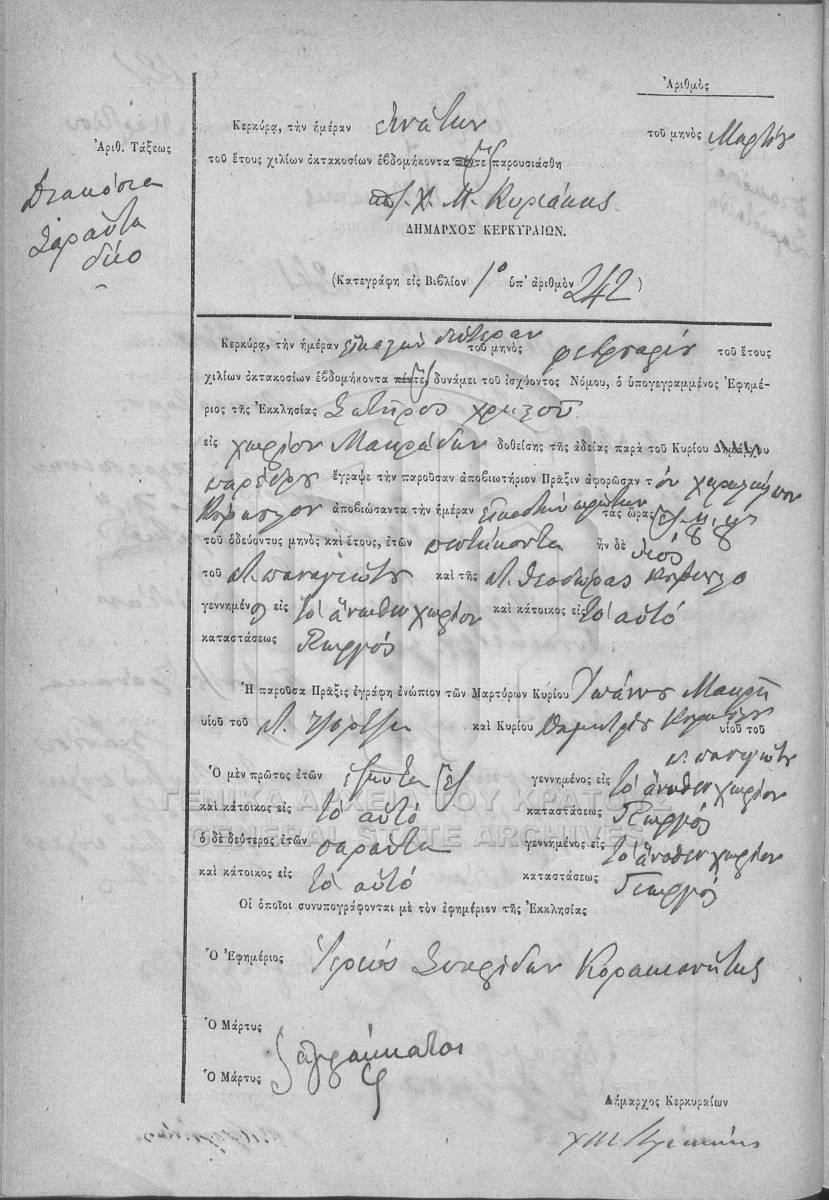 Ἀριθμὸς
Κερκύρᾳ, τὴν ἡμέραν ἐννάτην τοῦ μηνὸς Μαρτίου
Ἀριθ. Τάξεως
τοῦ ἔτους χιλίων ὀκτακοσίων ἑβδομήκοντα πέντε ἕξ παρουσιάσθη
Διακόσια
Σαράντα
δύο
Χ. Μ. Κυριάκης
ΔΗΜΑΡΧΟΣ ΚΕΡΚΥΡΑΙΩΝ.
(Κατεγράφη εἰς Βιβλίον 1ο ὑπ' ἀριθμὸν 242)
Κερκύρᾳ, τὴν ἡμέραν εἰκοστὴν δευτέραν τοῦ μηνὸς φεβρουαρίου τοῦ ἔτους
χιλίων ὀκτακοσίων ἑβδομήκοντα πέντε ἕξ δυνάμει τοῦ ἰσχύοντος Νόμου, ὁ ὑπογεγραμμένος Ἐφημέ-
ριος τῆς Ἐκκλησίας Σωτῆρος χριστοῦ
εἰς χωρίον Μακράδων δοθείσης τῆς ἀδείας παρὰ τοῦ Κυρίου Δημάρχου
παρέδρου ἔγραψε τὴν παροῦσαν ἀποβιωτήριον Πρᾶξιν ἀφορῶσαν τὸν χαράλαμπον
ἀποβιώσαντα τὴν ἡμέραν εἰκοστὴν πρώτην τὰς ὥρας ἕξ μ. μ.
τοῦ ὁδεύοντος μηνὸς καὶ ἔτους, ἐτῶν πεντήκοντα ἦν δὲ υἱός
τοῦ π. παναγιώτου καὶ τῆς π. θεοδώρας
γεννημένος εἰς τὸ ἄνωθεν χωρίον καὶ κάτοικος εἰς τὸ αὐτό
καταστάσεως Γεωργός
Ἡ παροῦσα Πρᾶξις ἐγράφη ἐνώπιον τῶν Μαρτύρων Κυρίου Ἰωάννου Μακρῆ
υἱοῦ τοῦ π. καὶ Κυρίου Δημητρίου υἱοῦ τοῦ
π. παναγιώτου
Ὁ μὲν πρῶτος ἐτῶν ἑξῆντα ἕξ γεννημένος εἰς τὸ ἄνωθεν χωρίον
ΓΕΝΙΚΑ ΑΡΧΕΙΑ ΤΟΥ ΚΡΑΤΟΥΣ
καὶ κάτοικος εἰς τὸ αὐτό καταστάσεως Γεωργός
GENERAL STATE ARCHIVES
ὁ δὲ δεύτερος ἐτῶν σαράντα γεννημένος εἰς τὸ ἄνωθεν χωρίον
καὶ κάτοικος εἰς τὸ αὐτό καταστάσεως Γεωργός
Οἱ ὁποῖοι συνυπογράφονται μὲ τὸν ἐφημέριον τῆς Ἐκκλησίας
Ὁ Ἐφημέριος Ἱερεύς Σπυρίδων Κορακιανίτης
Ὁ Μάρτυς
ἀγράμματοι
Ὁ Μάρτυς
Δήμαρχος Κερκυραίων
Χ Μ Κυριάκης